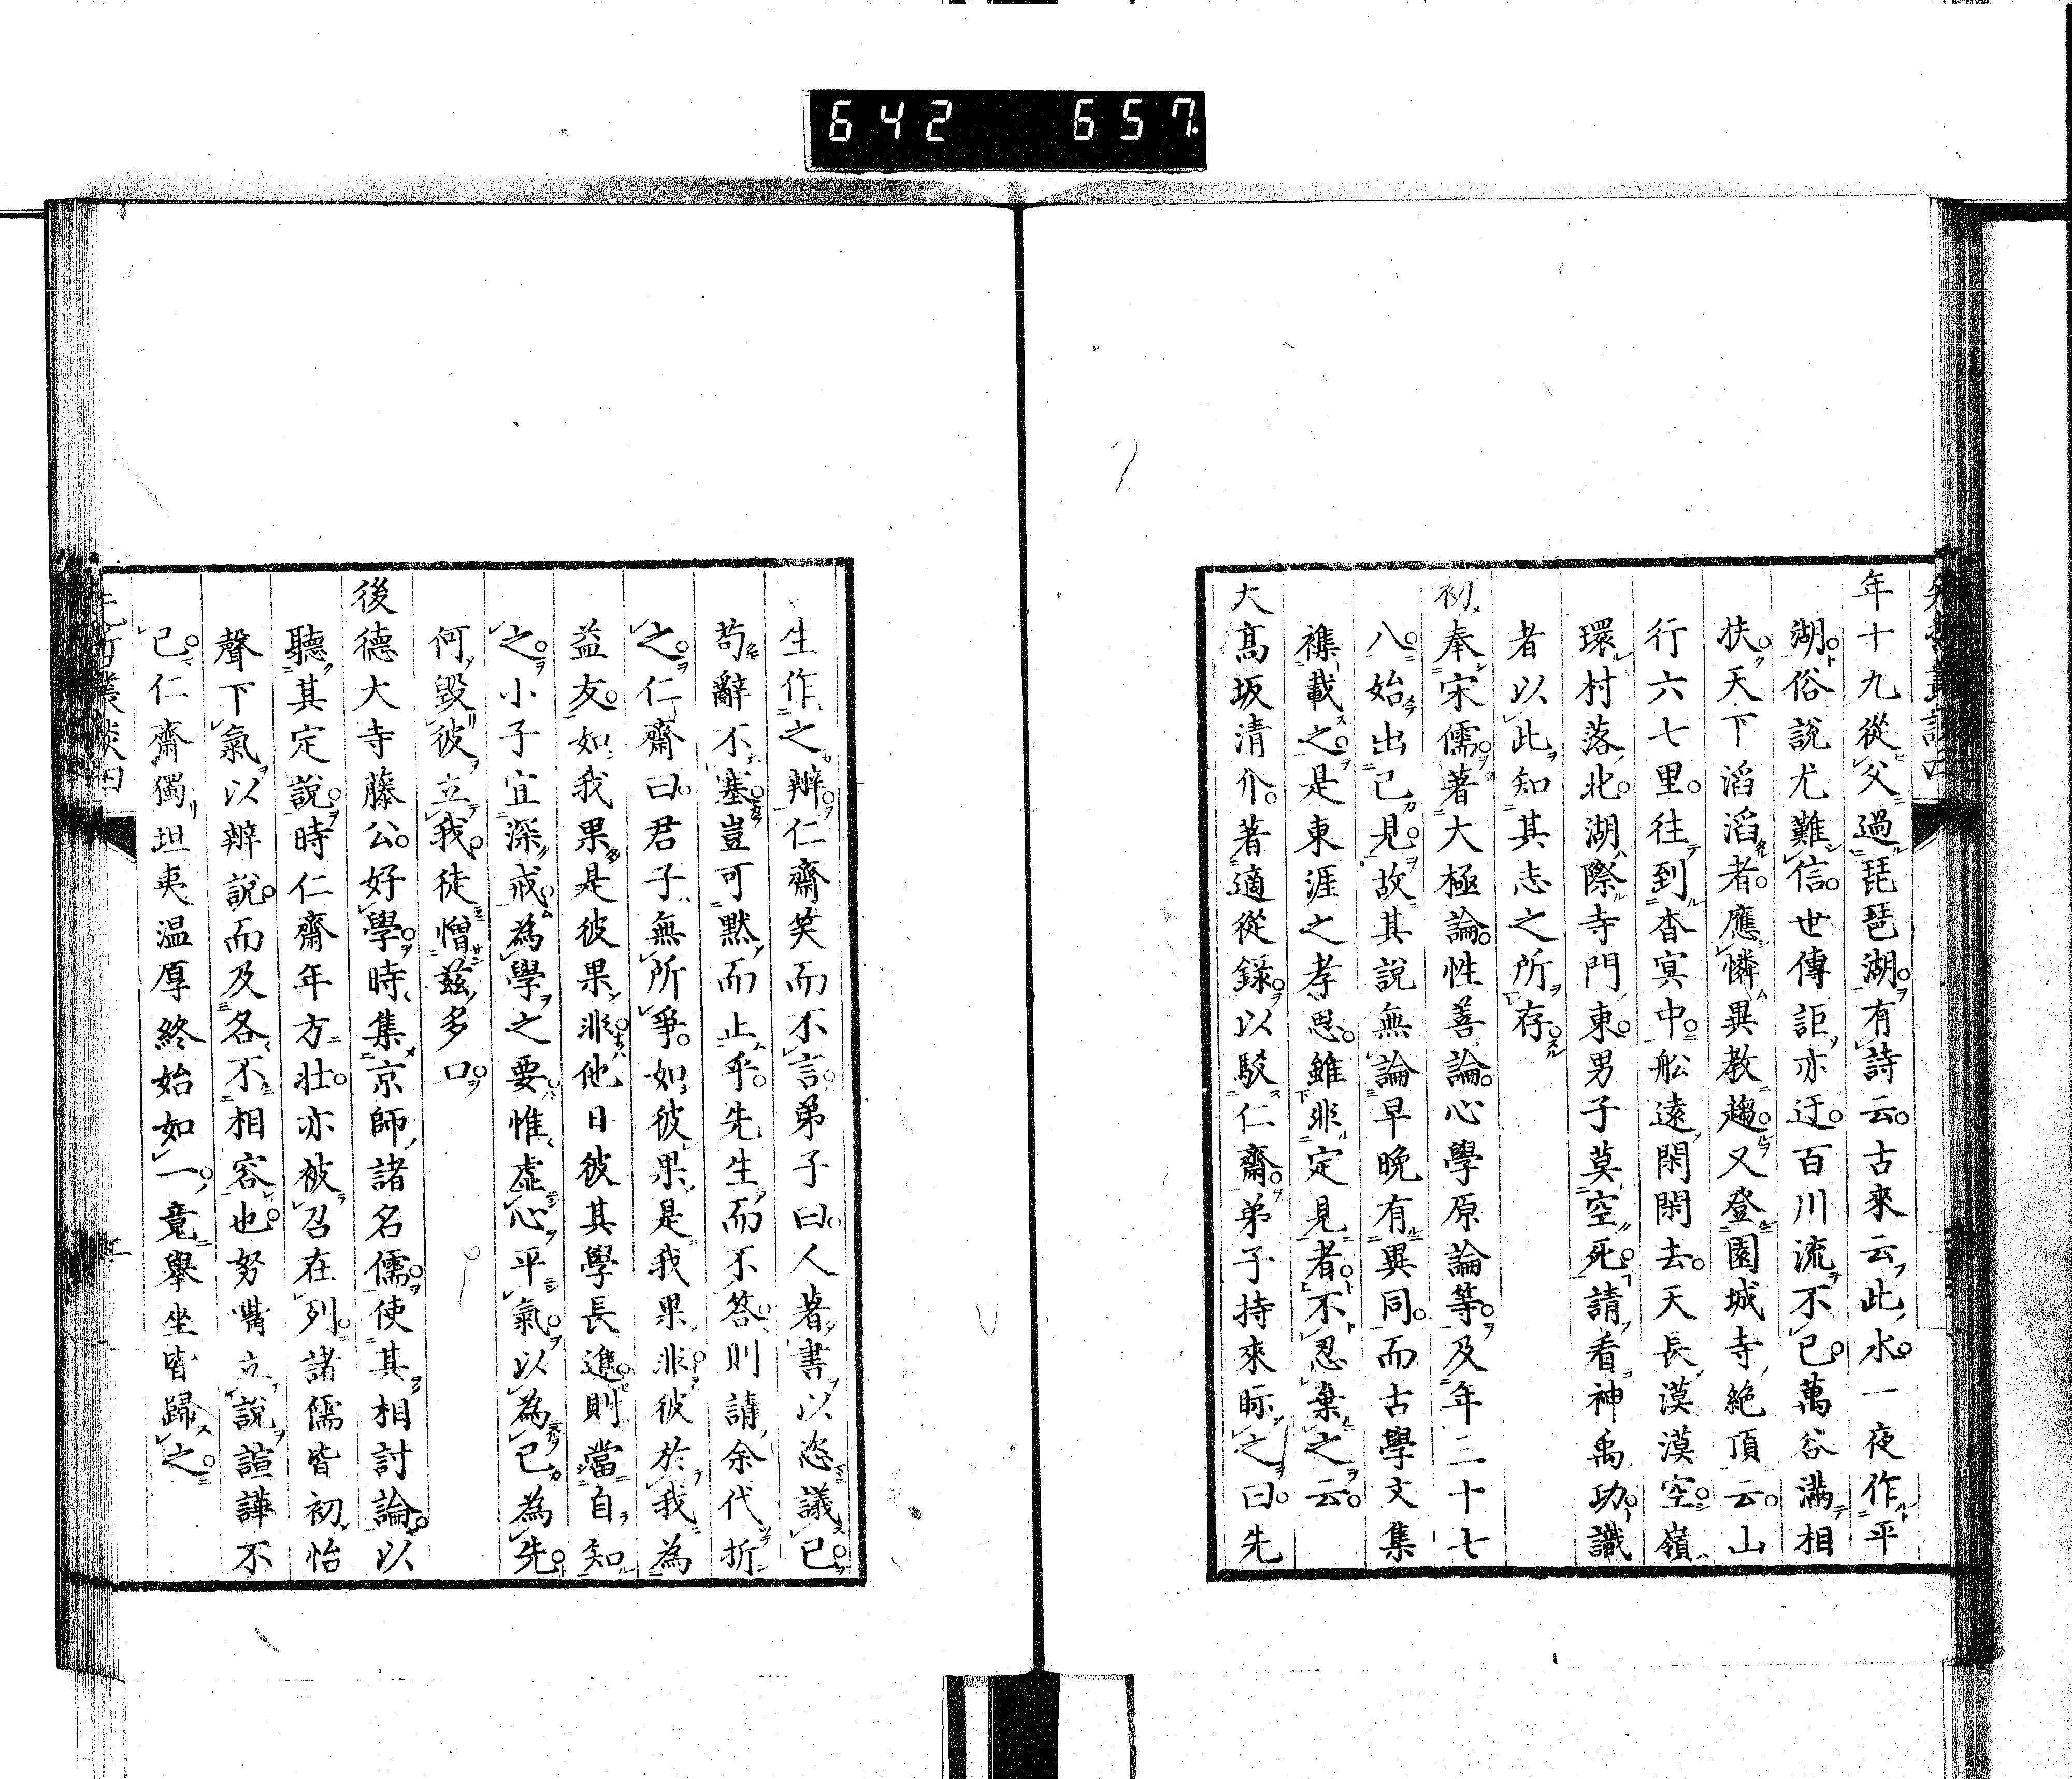 642 657
年十九從父過琵琶湖有詩云古來云此水一夜作平
湖俗說尤難信世傳詎亦迂百川流不已萬谷滿相
扶天下滔滔者應憐異教趨又登園城寺絶頂云山
行六七里往到杳冥中船遠閑閑去天長漠漠空嶺
環村落北湖際寺門東男子莫空死請看神禹功識
者以此知其志之所存
初奉宋儒著大極論性善論心學原論等及年三十七
八始出己見故其說無論早晚有異同而古學文集
襍載之是東涯之孝思雖非定見者不忍棄之云
大高坂清介著適從錄以駁仁齋弟子持來眎之曰先
生作之辨仁齋笑而不言弟子曰人著書以恣議己
苟辭不塞豈可默而止乎先生而不答則請余代折
之仁齋曰君子無所爭如彼果是我果非彼於我為
益友如我果是彼果非他日彼其學長進則當自知
之小子宜深戒為學之要惟虛心平氣以為己為先
何毀彼立我徒憎茲多口
後德大寺藤公好學時集京師諸名儒使其相討論以
聽其定說時仁齋年方壯亦被召在列諸儒皆初怡
聲下氣以辨說而及各不相容也努嘴立說諠譁不
已仁齋獨坦夷温厚終始如一竟舉坐皆歸之